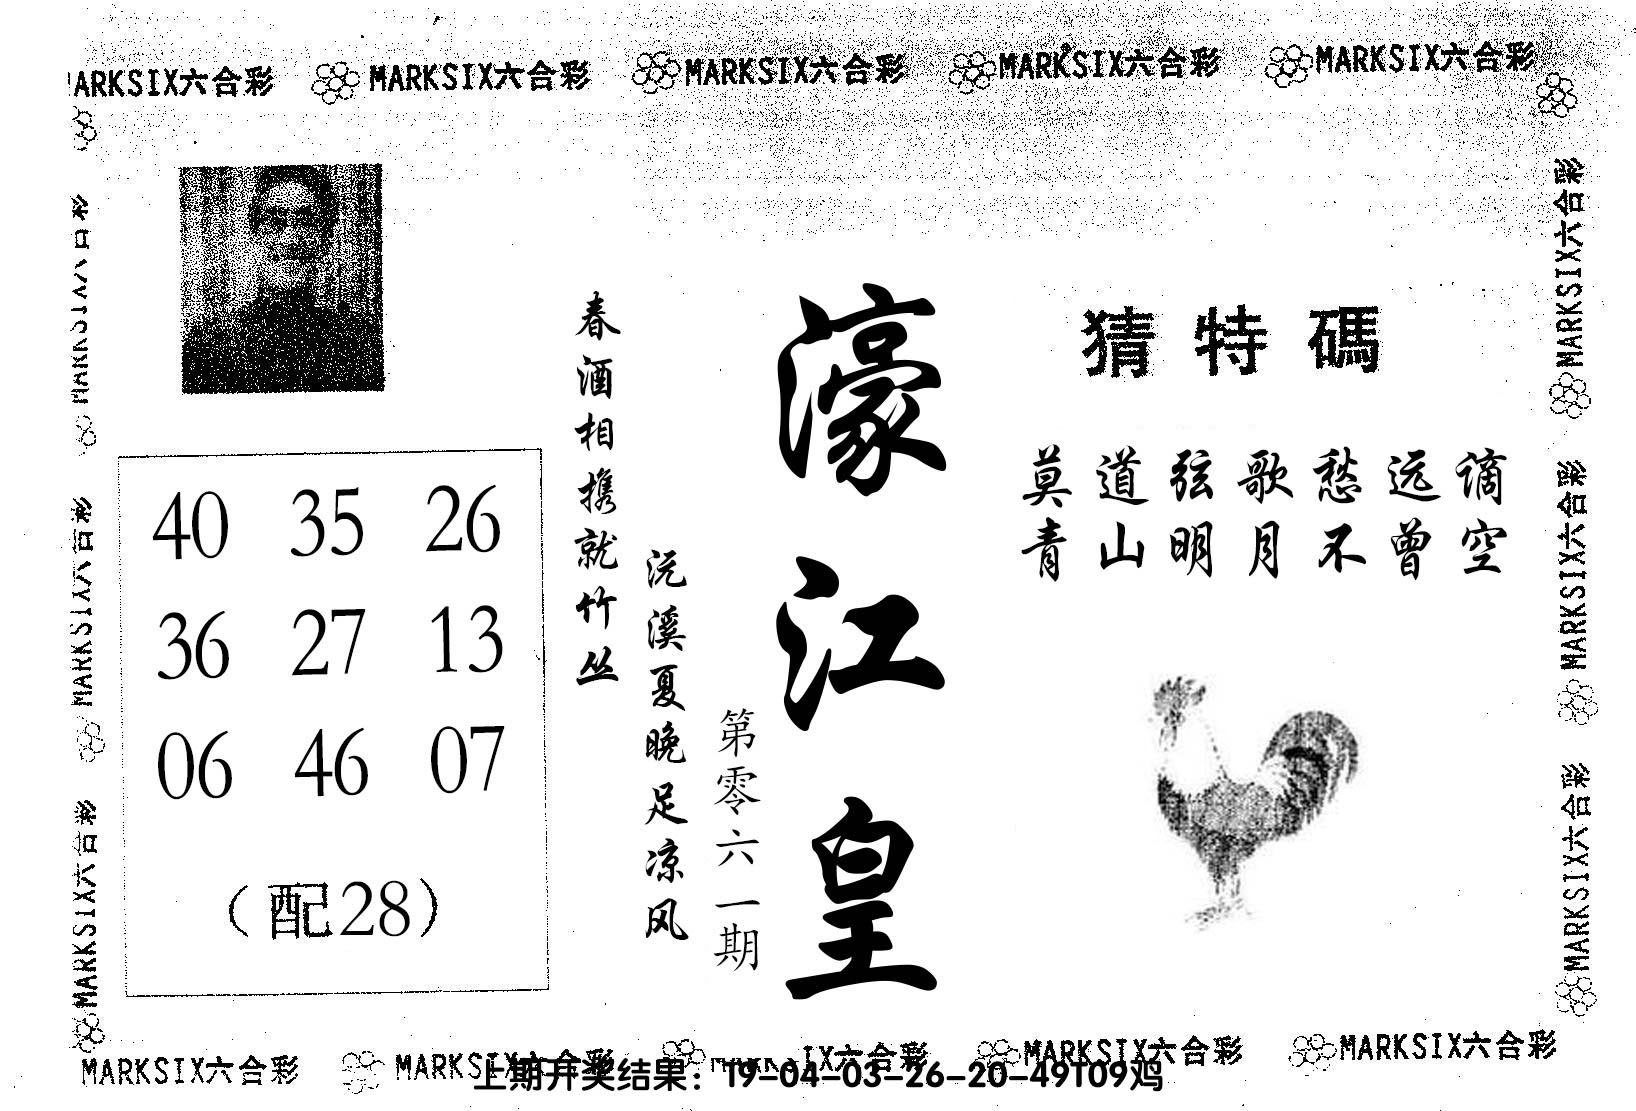 MARKSIX六合彩 MARKSIX六合彩 MARKSIX六合彩 MARKSIX六合彩 MARKSIX六合彩
MARKSIX六合彩
MARKSIX六合彩
MARKSIX六合彩
40 35 26
36 27 13
06 46 07
(配28)
春酒相携就竹丛
沅溪夏晚足凉风
第零六一期
濠江皇
猜特碼
莫道弦歌愁远谪
青山明月不曾空
MARKSIX六合彩
MARKSIX六合彩
MARKSIX六合彩
MARKSIX六合彩 MARKSIX六合彩 MARKSIX六合彩 MARKSIX六合彩
上期开奖结果：19-04-03-26-20-49T09鸡